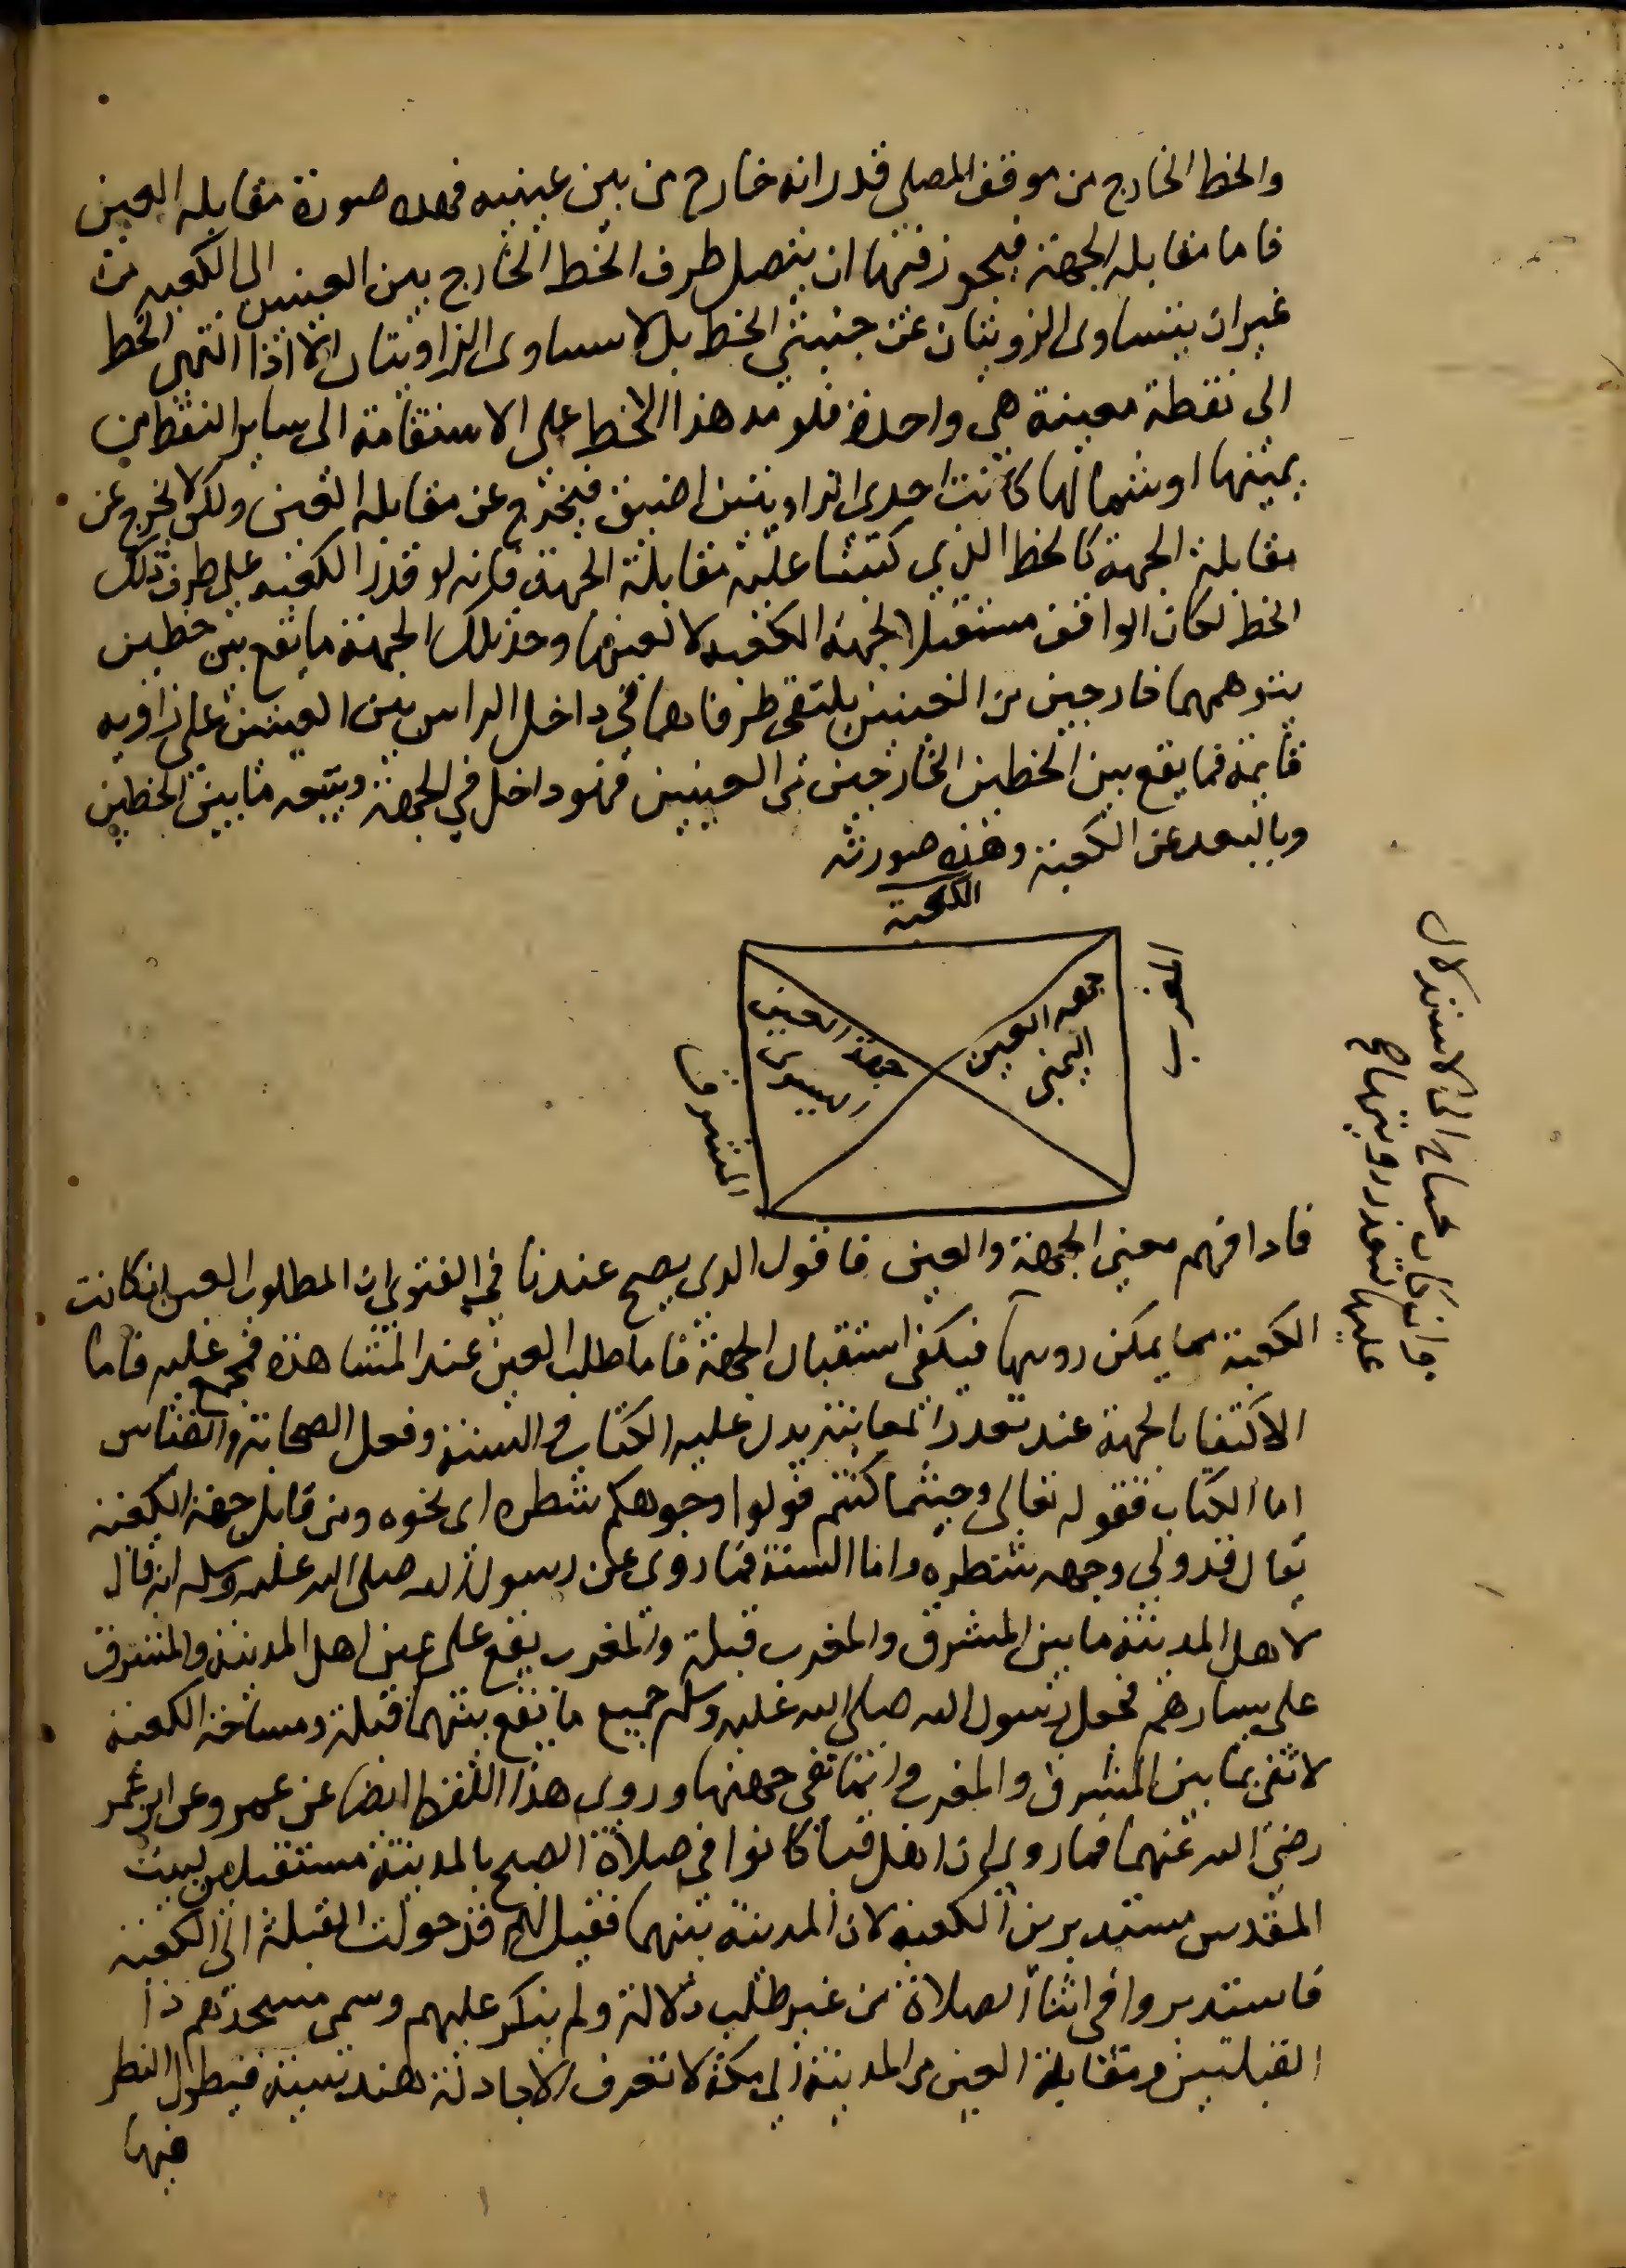 والخط الخارج من موقف المصلي قدر انه خارج من بين عينيه فهذه صورة مقابلة العين
فاما مقابلة الجهة فيجوز فيها ان يتصل طرف الخط الخارج بين العينين الى الكعبة من
غير ان يتساوى الزويتان عن جنبتي الخط بل لا يتساوى الزاويتان الا اذا انتهى الخط
الى نقطة معينة هي واحدة فلو مد هذا الخط على الاستقامة الى ساير النقط من
يمينها او شمالها كانت احدى الزاويتين اضيق فيخرج عن مقابلة العين ولكن لا يخرج عن
مقابلة الجهة كالخط الذي كتبنا عليه مقابلة الجهة فانه لو قدر الكعبة على طرف ذلك
الخط لكان الواقف مستقبلا لجهة الكعبة لا لعينها وحد تلك الجهة ما يقع بين خطين
يتوهمهما خارجين من العينين يلتقى طرفاهما في داخل الراس بين العينين على زاوية
قايمة فما يقع بين الخطين الخارجين من العينين فهو داخل في الجهة ويتسعة ما بين الخطين
وبالبعد عن الكعبة وهذه صورته
الكعبة
جهة العين
اليمنى
جهة العين
اليسرى
المشرق
فاذا فهم معنى الجهة والعين فاقول الذي يصح عندنا في الفتوى ان المطلوب العين ان كانت
الكعبة مما يمكن رويتها
وان كان يحتاج الى الاستدلال
عليها لتعذر رويتها صح
فيكفى استقبال الجهة فاما طلب العين عند المشاهدة فمجمع عليه فاما
الاكتفا بالجهة عند تعذر المعاينة يدل عليه الكتاب والسنة وفعل الصحابة والقياس
اما الكتاب فقوله تعالى وحيثما كنتم فولوا وجوهكم شطره اى نحوه ومن قابل جهة الكعبة
يقال قد ولي وجهه شطره واما السنة فما روى عن رسول الله صلى الله عليه وسلم انه قال
لاهل المدينة ما بين المشرق والمغرب قبلة والمغرب يقع على يمين اهل المدينة والمشرق
على يسارهم فجعل رسول الله صلى الله عليه وسلم جميع ما يقع بينهما قبلة ومساحة الكعبة
لا تفى بما بين المشرق والمغرب وانما تفى جهتها وروى هذا اللفظ ايضا عن عمر وعن ابن عمر
رضى الله عنهما فما روى ان اهل قبا كانوا في صلاة الصبح بالمدينة مستقبلين لبيت
المقدس مستدبرين الكعبة لان المدينة بينهما فقيل لهم قد حولت القبلة الى الكعبة
فاستدبروا في اثنا الصلاة من غير طلب دلالة ولم ينكر عليهم وسمى مسجدهم ذا
القبلتين ومقابلة العين من المدينة الى مكة لا تعرف الا بادلة هندسية فيطول النظر
فيها